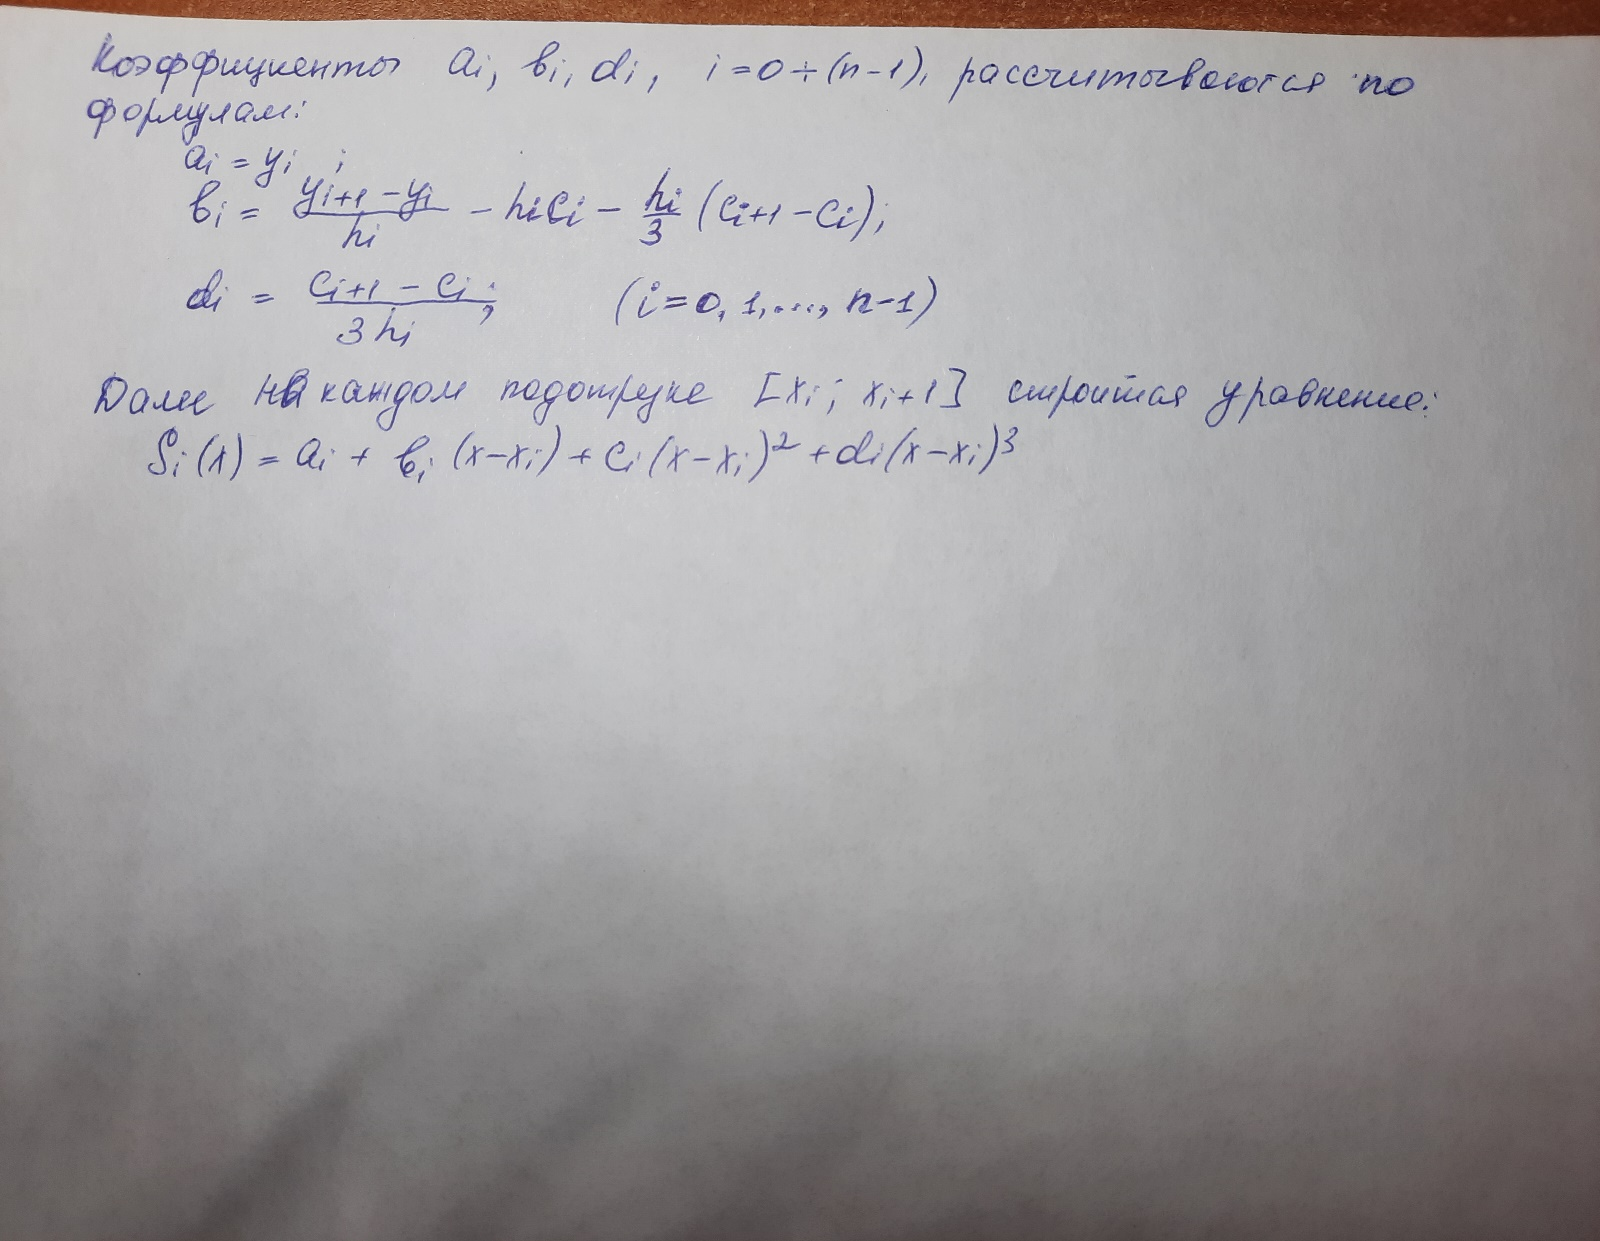 Коэффициенты ai, bi, di, i=0÷(n-1), рассчитываются по
формулам:
ai = yi ;
bi = (yi+1 - yi)/hi - hici - hi/3 (ci+1 - ci);
di = (ci+1 - ci)/3hi; (i=0, 1,..., n-1)
Далее на каждом подотрезке [xi; xi+1] строится уравнение:
Si(x) = ai + bi (x-xi) + ci (x-xi)² + di(x-xi)³